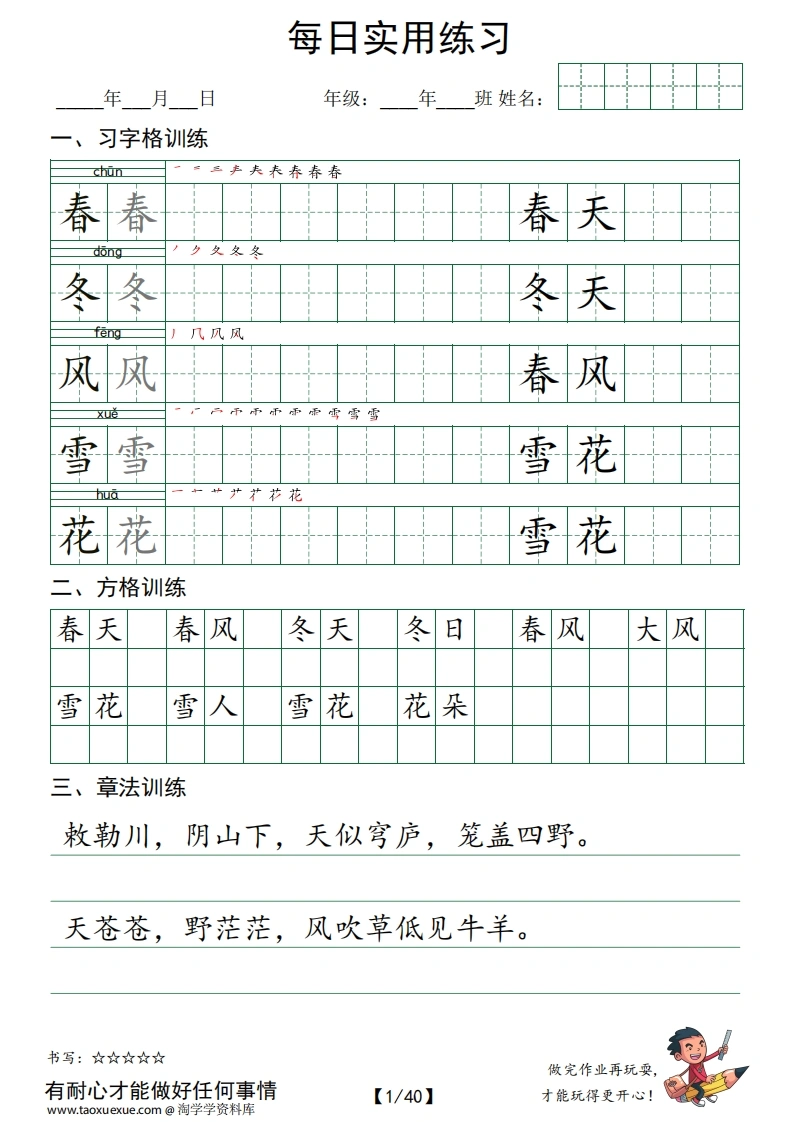 每日实用练习
_____年___月___日 年级：____年____班 姓名：
一、习字格训练
chūn
春 春 春 天
dōng
冬 冬 冬 天
fēng
风 风 春 风
xuě
雪 雪 雪 花
huā
花 花 雪 花
二、方格训练
春天 春风 冬天 冬日 春风 大风
雪花 雪人 雪花 花朵
三、章法训练
敕勒川，阴山下，天似穹庐，笼盖四野。
天苍苍，野茫茫，风吹草低见牛羊。
书写：☆☆☆☆☆
有耐心才能做好任何事情
www.taoxuexue.com @ 淘学学资料库
【1/40】
做完作业再玩耍，
才能玩得更开心！